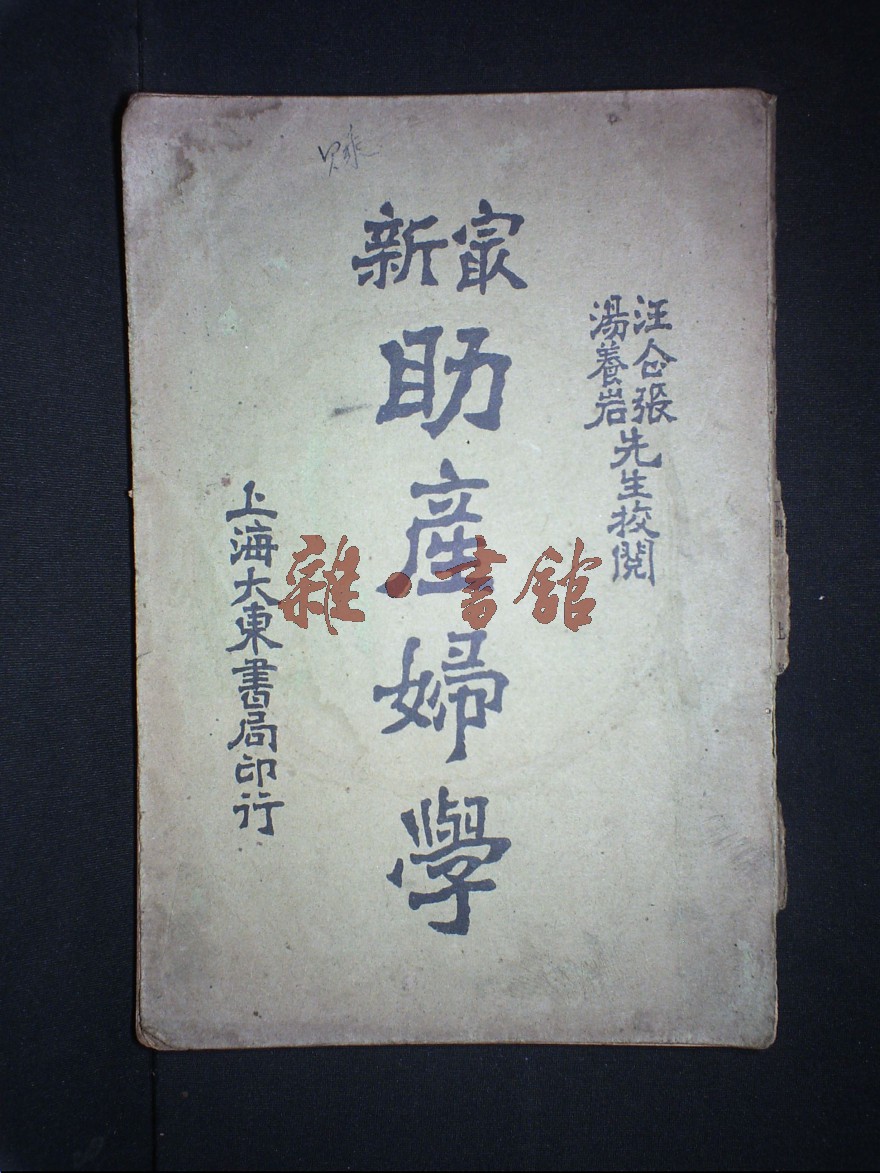 汪企張
湯養岩
先生校閱
㝡新
助產婦學
上海大東書局印行
雜·書館